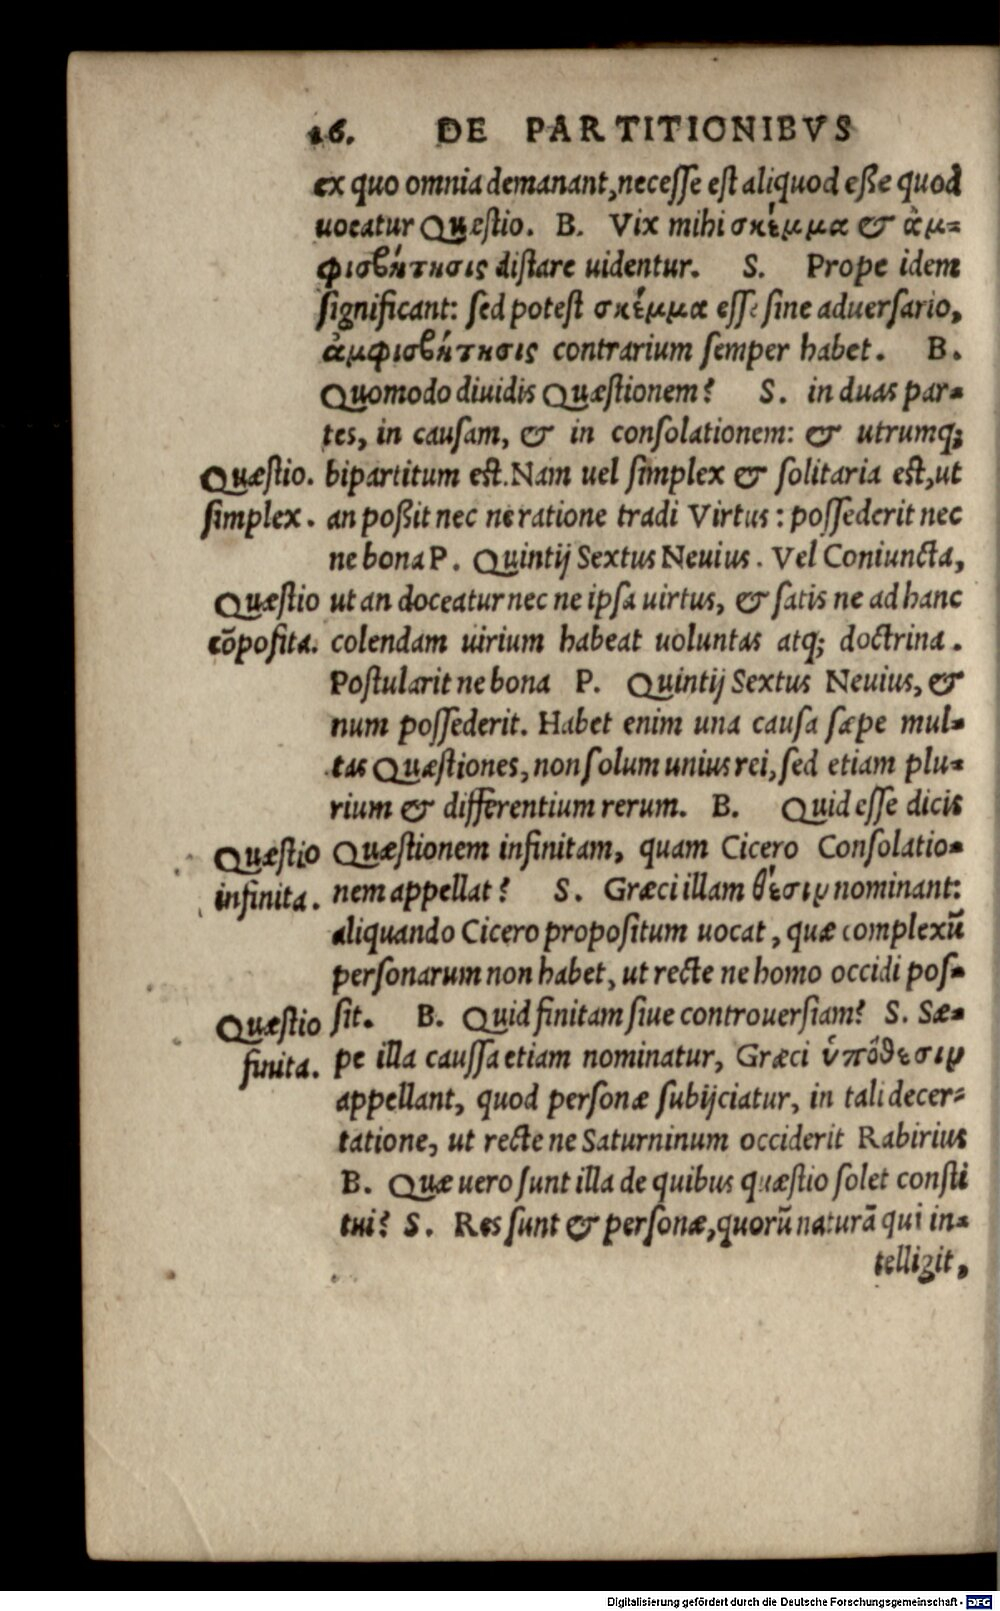 26. DE PARTITIONIBVS
ex quo omnia demanant, necesse est aliquod eße quod
uocatur Quæstio. B. Vix mihi σκέμμα & ἀμ-
φισβήτησις distare uidentur. S. Prope idem
significant: sed potest σκέμμα esse sine aduersario,
ἀμφισβήτησις contrarium semper habet. B.
Quomodo diuidis Quæstionem? S. in duas par-
tes, in causam, & in consolationem: & utrumq;
Quæstio. bipartitum est. Nam uel simplex & solitaria est, ut
simplex. an poßit nec ne ratione tradi Virtus: possederit nec
ne bona P. Quintij Sextus Neuius. Vel Coniuncta,
Quæstio ut an doceatur nec ne ipsa uirtus, & satis ne ad hanc
cõposita. colendam uirium habeat uoluntas atq; doctrina.
Postularit ne bona P. Quintij Sextus Neuius, &
num possederit. Habet enim una causa sæpe mul-
tas Quæstiones, non solum unius rei, sed etiam plu-
rium & differentium rerum. B. Quid esse dicis
Quæstio Quæstionem infinitam, quam Cicero Consolatio-
infinita. nem appellat? S. Græci illam θέσιν nominant:
aliquando Cicero propositum uocat, quæ complexũ
personarum non habet, ut recte ne homo occidi pos-
Quæstio sit. B. Quid finitam siue controuersiam? S. Sæ-
finita. pe illa caussa etiam nominatur, Græci ὑπόθεσιν
appellant, quod personæ subijciatur, in tali decer-
tatione, ut recte ne Saturninum occiderit Rabirius
B. Quæ uero sunt illa de quibus quæstio solet consti
tui? S. Res sunt & personæ, quorũ naturã qui in-
telligit,
Digitalisierung gefördert durch die Deutsche Forschungsgemeinschaft - DFG